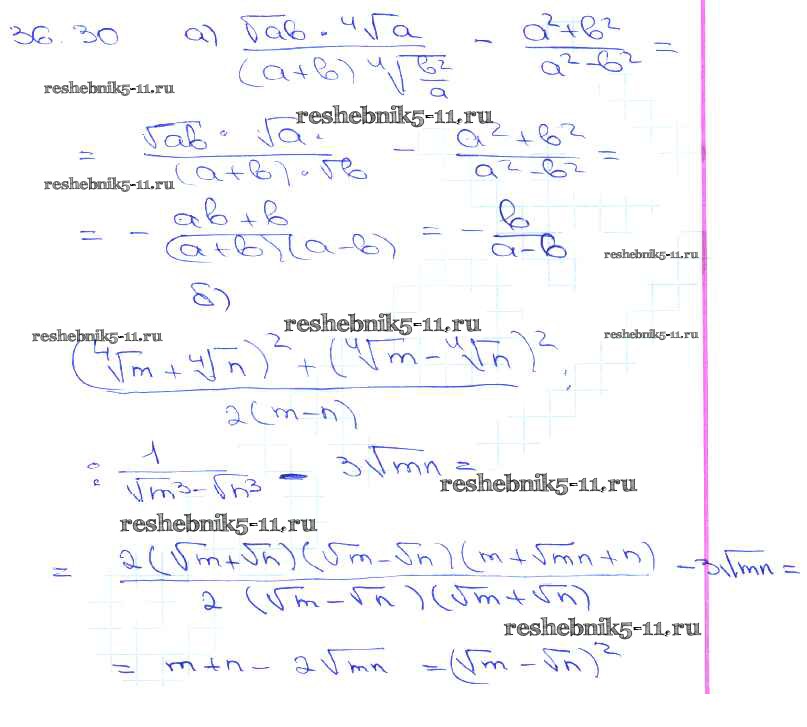 36.30 а) (√ab · ⁴√a)/((a+b) ⁴√(b²/a)) − (a²+b²)/(a²−b²) =
reshebnik5-11.ru
reshebnik5-11.ru
= (√ab · √a ·)/((a+b) · √b) − (a²+b²)/(a²−b²) =
reshebnik5-11.ru
= − (ab+b)/((a+b)(a−b)) = − b/(a−b)
reshebnik5-11.ru
б)
reshebnik5-11.ru
reshebnik5-11.ru
reshebnik5-11.ru
((⁴√m + ⁴√n)² + (⁴√m − ⁴√n)²)/(2(m−n)) :
: 1/(√m³ − √n³) − 3√mn =
reshebnik5-11.ru
reshebnik5-11.ru
= (2(√m+√n)(√m−√n)(m+√mn+n))/(2(√m−√n)(√m+√n)) − 3√mn =
reshebnik5-11.ru
= m+n − 2√mn = (√m − √n)²